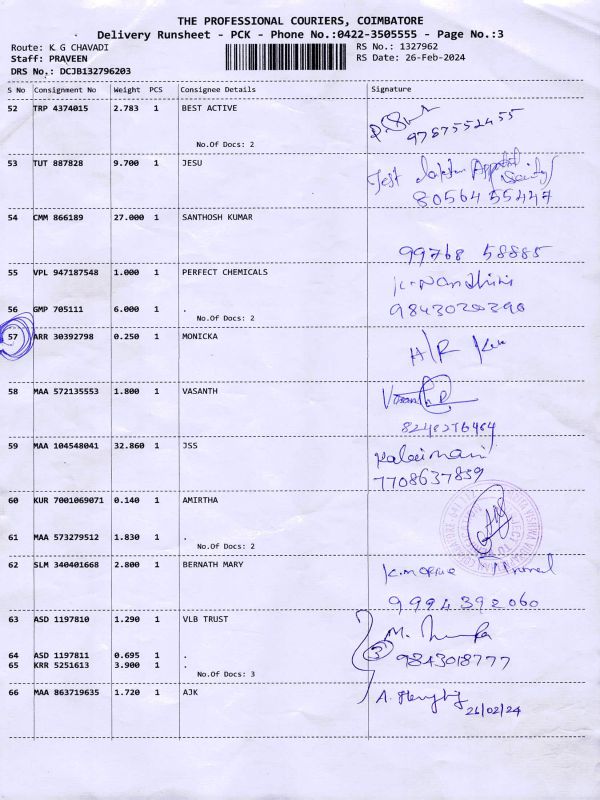 THE PROFESSIONAL COURIERS, COIMBATORE
Delivery Runsheet - PCK - Phone No.:0422-3505555 - Page No.:3
Route: K G CHAVADI
RS No.: 1327962
Staff: PRAVEEN
RS Date: 26-Feb-2024
DRS No.: DCJB132796203
S No Consignment No Weight PCS Consignee Details Signature
52 TRP 4374015 2.783 1 BEST ACTIVE
9787552455
No.Of Docs: 2
53 TUT 887828 9.700 1 JESU
8056455447
54 CMM 866189 27.000 1 SANTHOSH KUMAR
99768 58885
55 VPL 947187548 1.000 1 PERFECT CHEMICALS
K. Nandhini
56 GMP 705111 6.000 1 .
No.Of Docs: 2
57 ARR 30392798 0.250 1 MONICKA
H/R
58 MAA 572135553 1.800 1 VASANTH
Vasanth
59 MAA 104548041 32.860 1 JSS
Kalaimani
7708637859
60 KUR 7001069071 0.140 1 AMIRTHA
61 MAA 573279512 1.830 1 .
No.Of Docs: 2
62 SLM 340401668 2.800 1 BERNATH MARY
9994392060
63 ASD 1197810 1.290 1 VLB TRUST
M.
64 ASD 1197811 0.695 1 .
3 9843018777
65 KRR 5251613 3.900 1 .
No.Of Docs: 3
66 MAA 863719635 1.720 1 AJK
A.
26/02/24